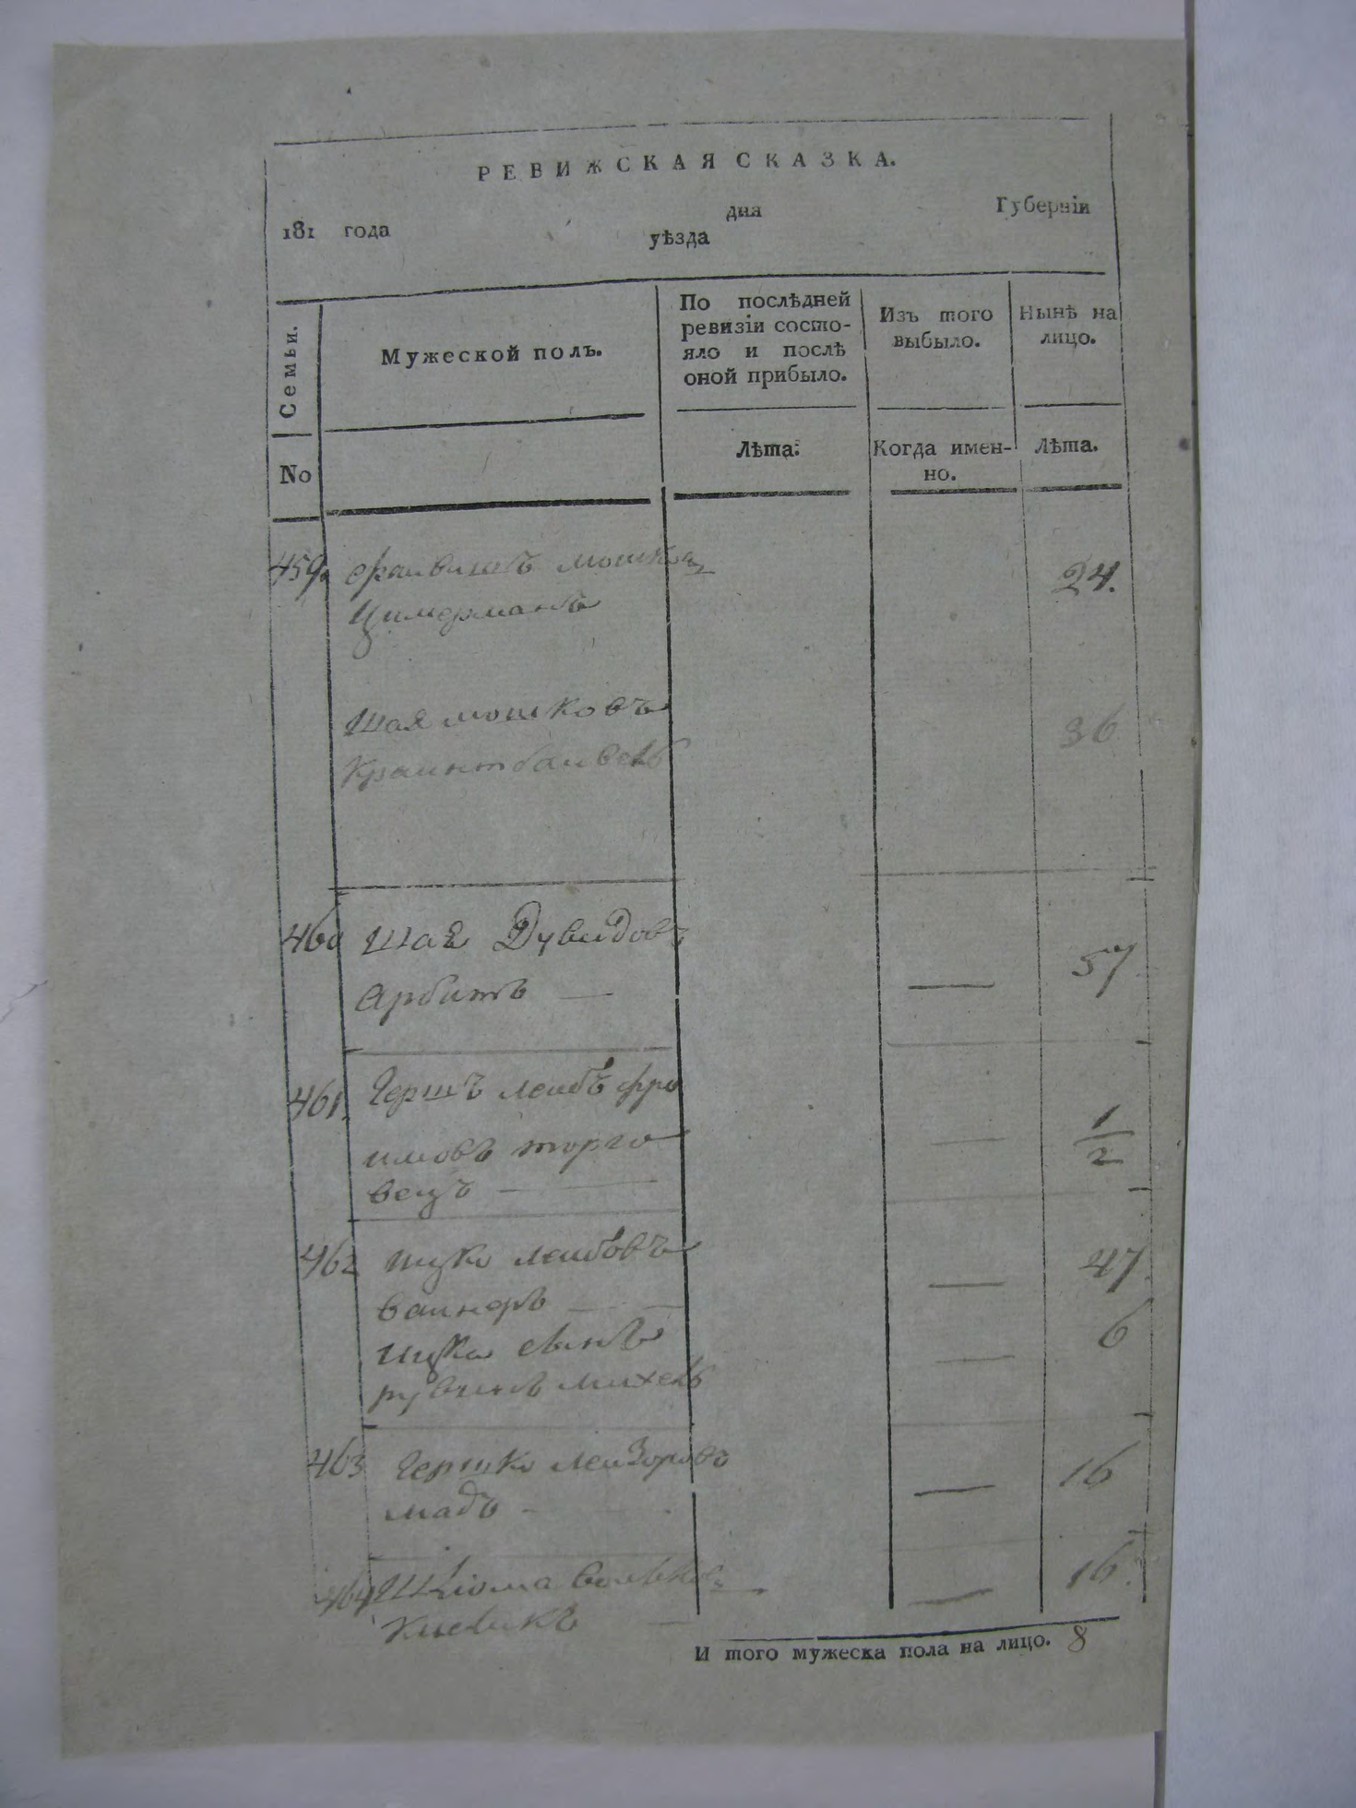 РЕВИЖСКАЯ СКАЗКА.
181 года дня Губерніи
уѣзда
Семьи.
No
Мужеской полъ.
По послѣдней
ревизіи состо-
яло и послѣ
оной прибыло.
Лѣта:
Изъ того
выбыло.
Когда имен-
но.
Нынѣ на
лицо.
Лѣта.
459. Фаивишъ мошков 24.
Цимерманъ
Шая мошковъ 36
460 Шая Дувидовъ
Арбитъ — — 57
461. Гершъ леибъ фро
имовъ торго — 1/2
вецъ —
462 Ицко леибовъ — 47
ваинеръ —
Ицка сынъ — 6
рувинъ михель
463 Гершко леизоровъ — 16
мадъ —
464 Шлiома волько — 16.
Киевикъ —
И того мужеска пола на лицо. 8